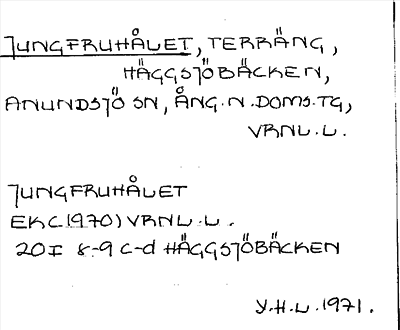 JUNGFRUHÅLET, TERRÄNG,
HÄGGSJÖBÄCKEN,
ANUNDSJÖ SN, ÅNG.N.DOMS.TG,
VRNL.L.
JUNGFRUHÅLET
EKC(1970) VRNL.L.
20I 8-9 c-d HÄGGSJÖBÄCKEN
Y.H.L.1971.